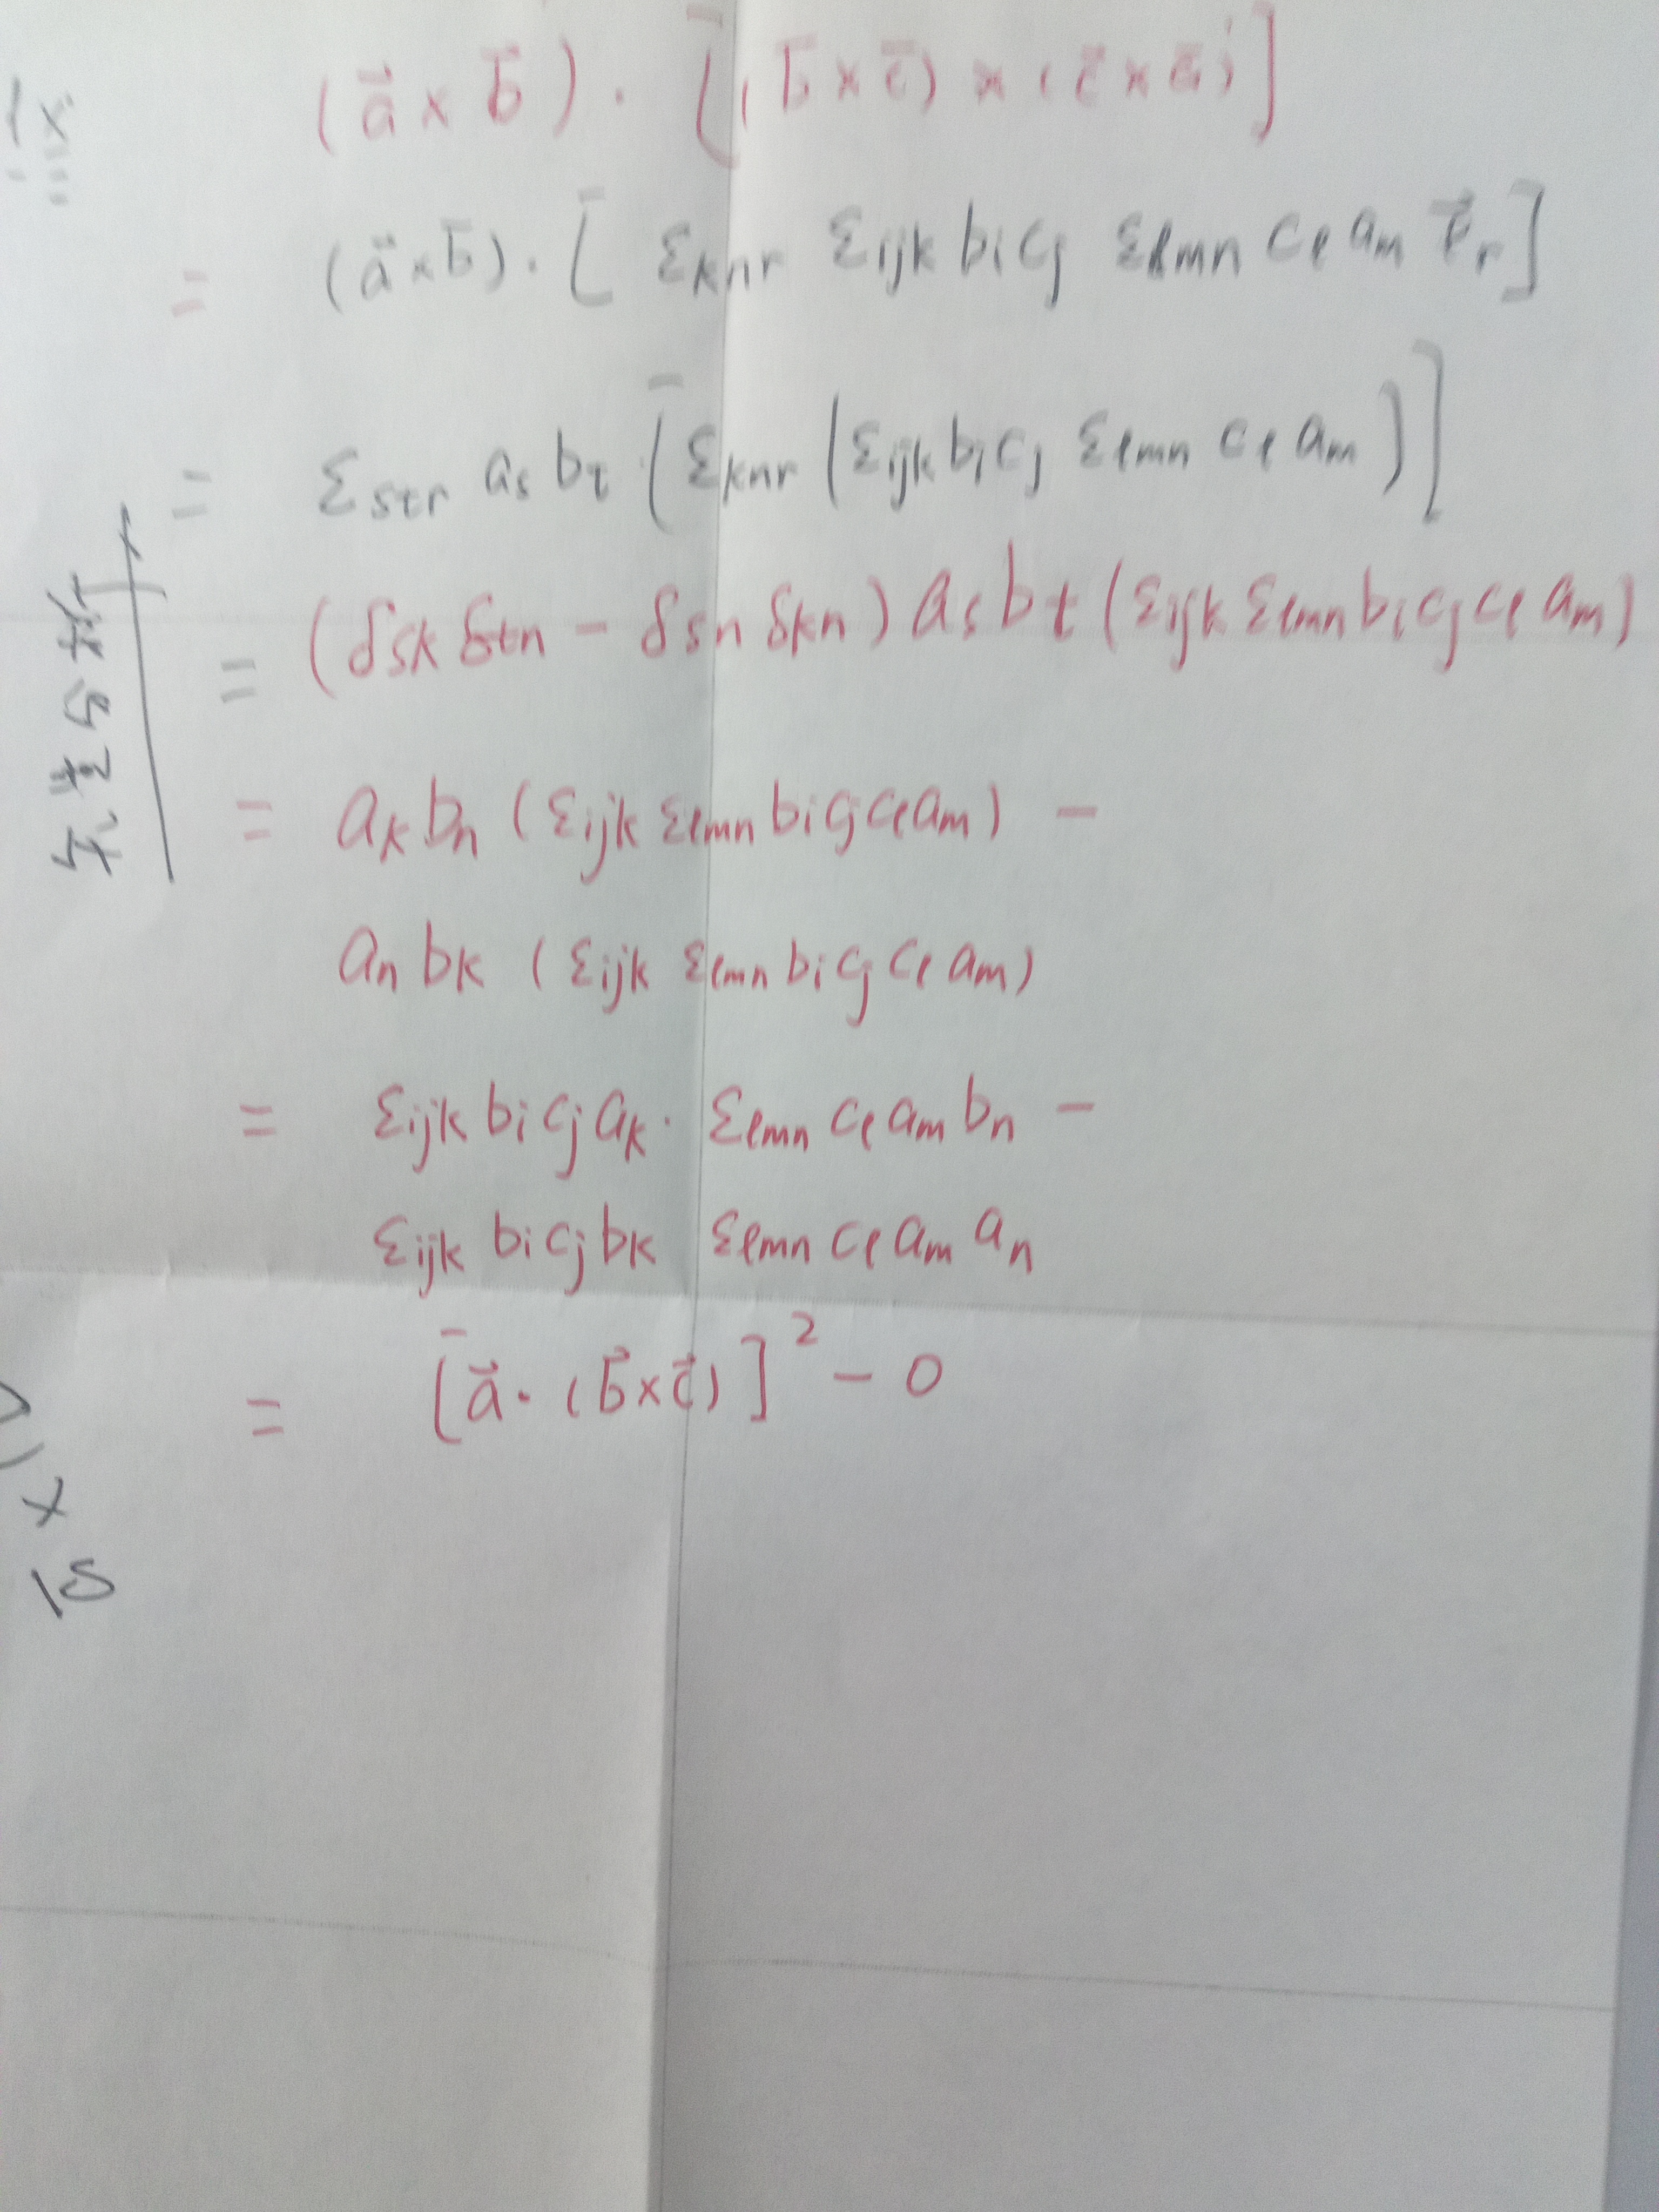 (a⃗ × b⃗) · [(b⃗ × c⃗) × (c⃗ × a⃗)]
= (a⃗ × b⃗) · [ε_knr ε_ijk b_i c_j ε_lmn c_l a_m e⃗_r]
= ε_str a_s b_t [ε_knr (ε_ijk b_i c_j ε_lmn c_l a_m)]
= (δ_sk δ_tn − δ_sn δ_kn) a_s b_t (ε_ijk ε_lmn b_i c_j c_l a_m)
= a_k b_n (ε_ijk ε_lmn b_i c_j c_l a_m) −
a_n b_k (ε_ijk ε_lmn b_i c_j c_l a_m)
= ε_ijk b_i c_j a_k · ε_lmn c_l a_m b_n −
ε_ijk b_i c_j b_k ε_lmn c_l a_m a_n
= [a⃗ · (b⃗ × c⃗)]² − 0
矢量分析